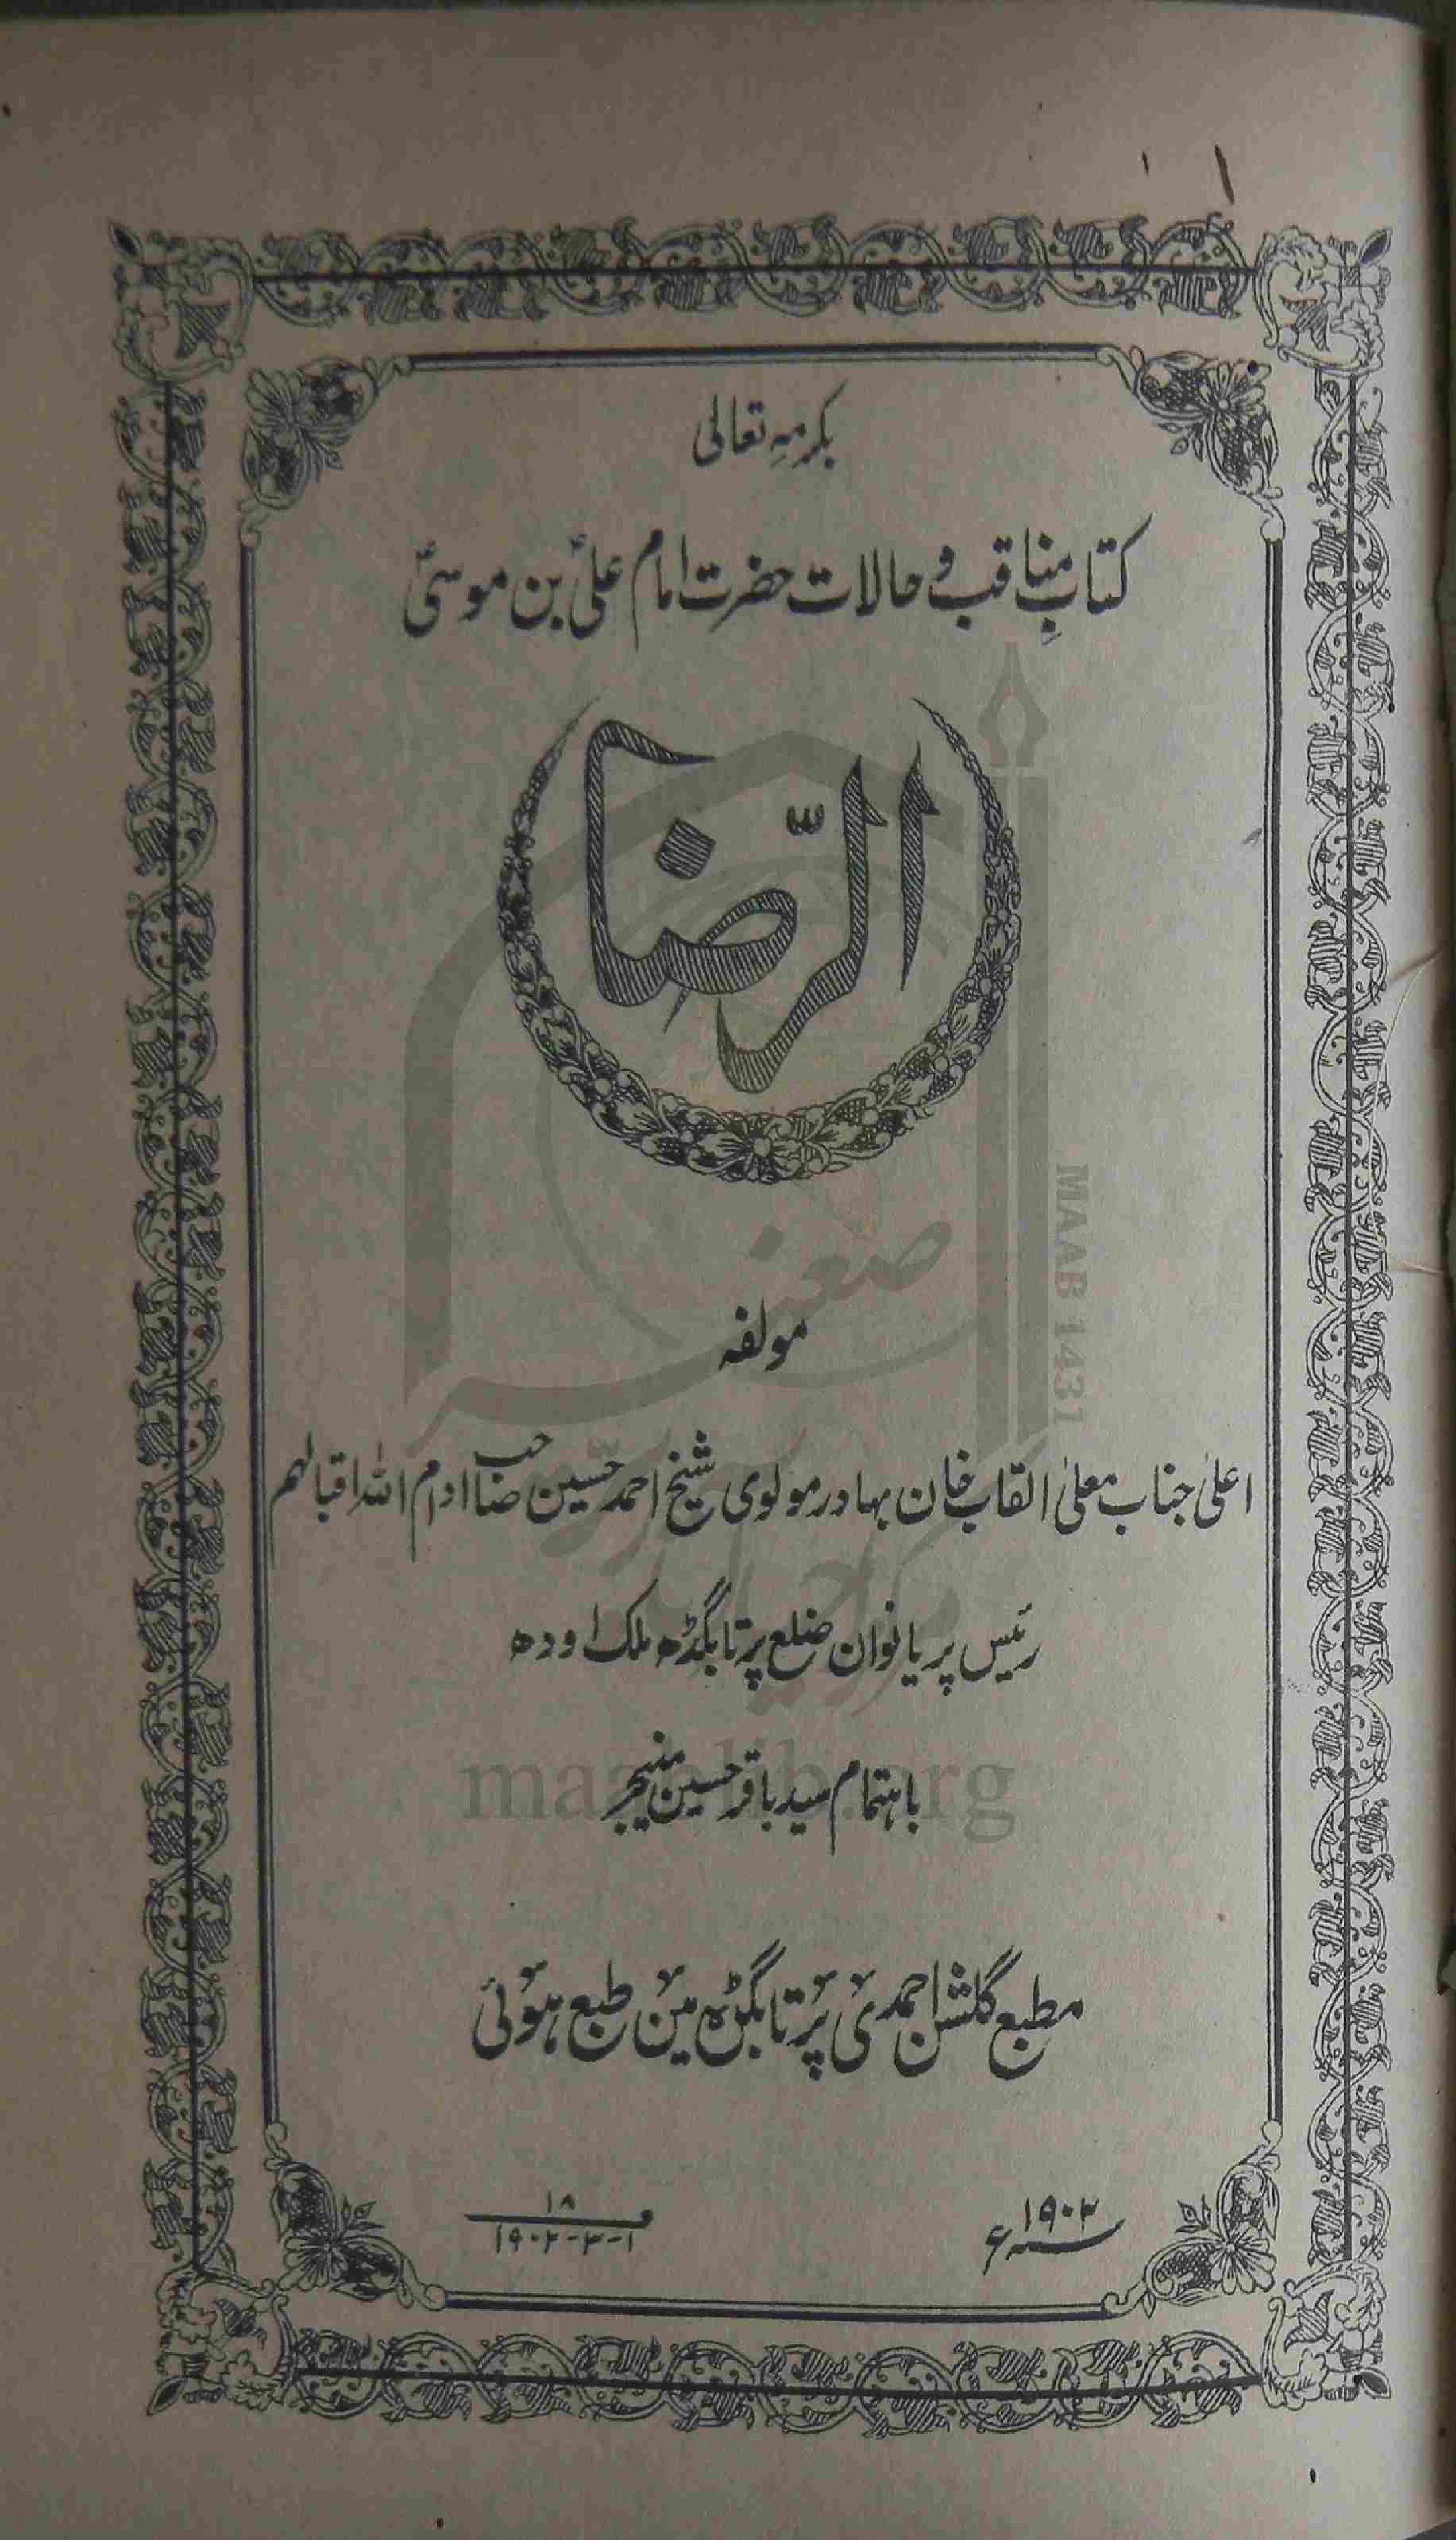 بکرمہِ تعالی
کتابِ مناقب و حالات حضرت امام علیؑ بن موسیؑ
الرّضا
مولفہ
اعلیٰ جناب معلیٰ القاب خان بہادر مولوی شیخ احمد حسین صاحب ادام اللہ اقبالہم
رئیس پریانوان ضلع پرتابگڑھ ملک اودھ
باہتمام سید باقر حسین منیجر
مطبع گلشن احمدی پرتابگڑہ مین طبع ہوئی
سنہ ۱۹۰۲ ء
۱۸
۱-۳-۱۹۰۲
MAAB 1431
maablib.org